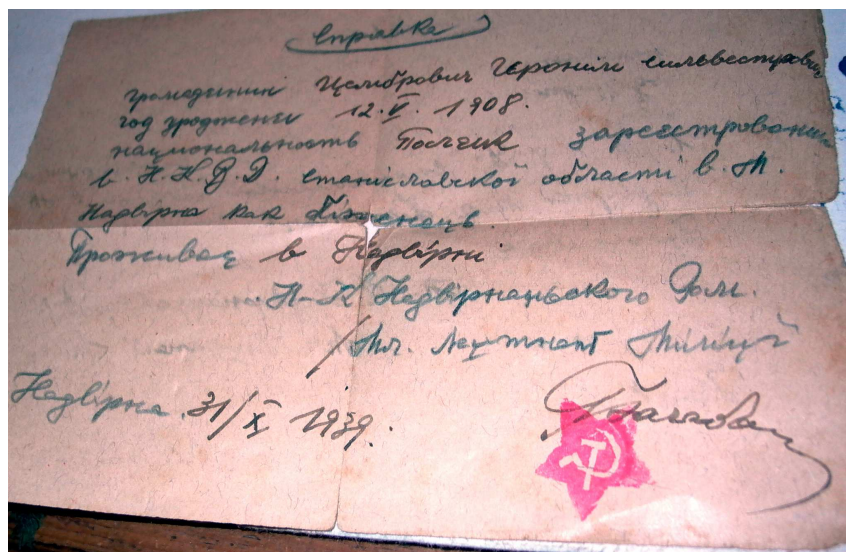 Справка
громадянин Цембрович Героним Сильвестрович
год уроджения 12.V. 1908.
национальность Поляк зареєстрований
в Н.К.В.Д. Станіславской области в М.
Надвірна как біженець
Проживає в Надвірні
Н-К Надвірнанського
/Мл. Лейтнант Міліції
Надвірна 31/X 1939.